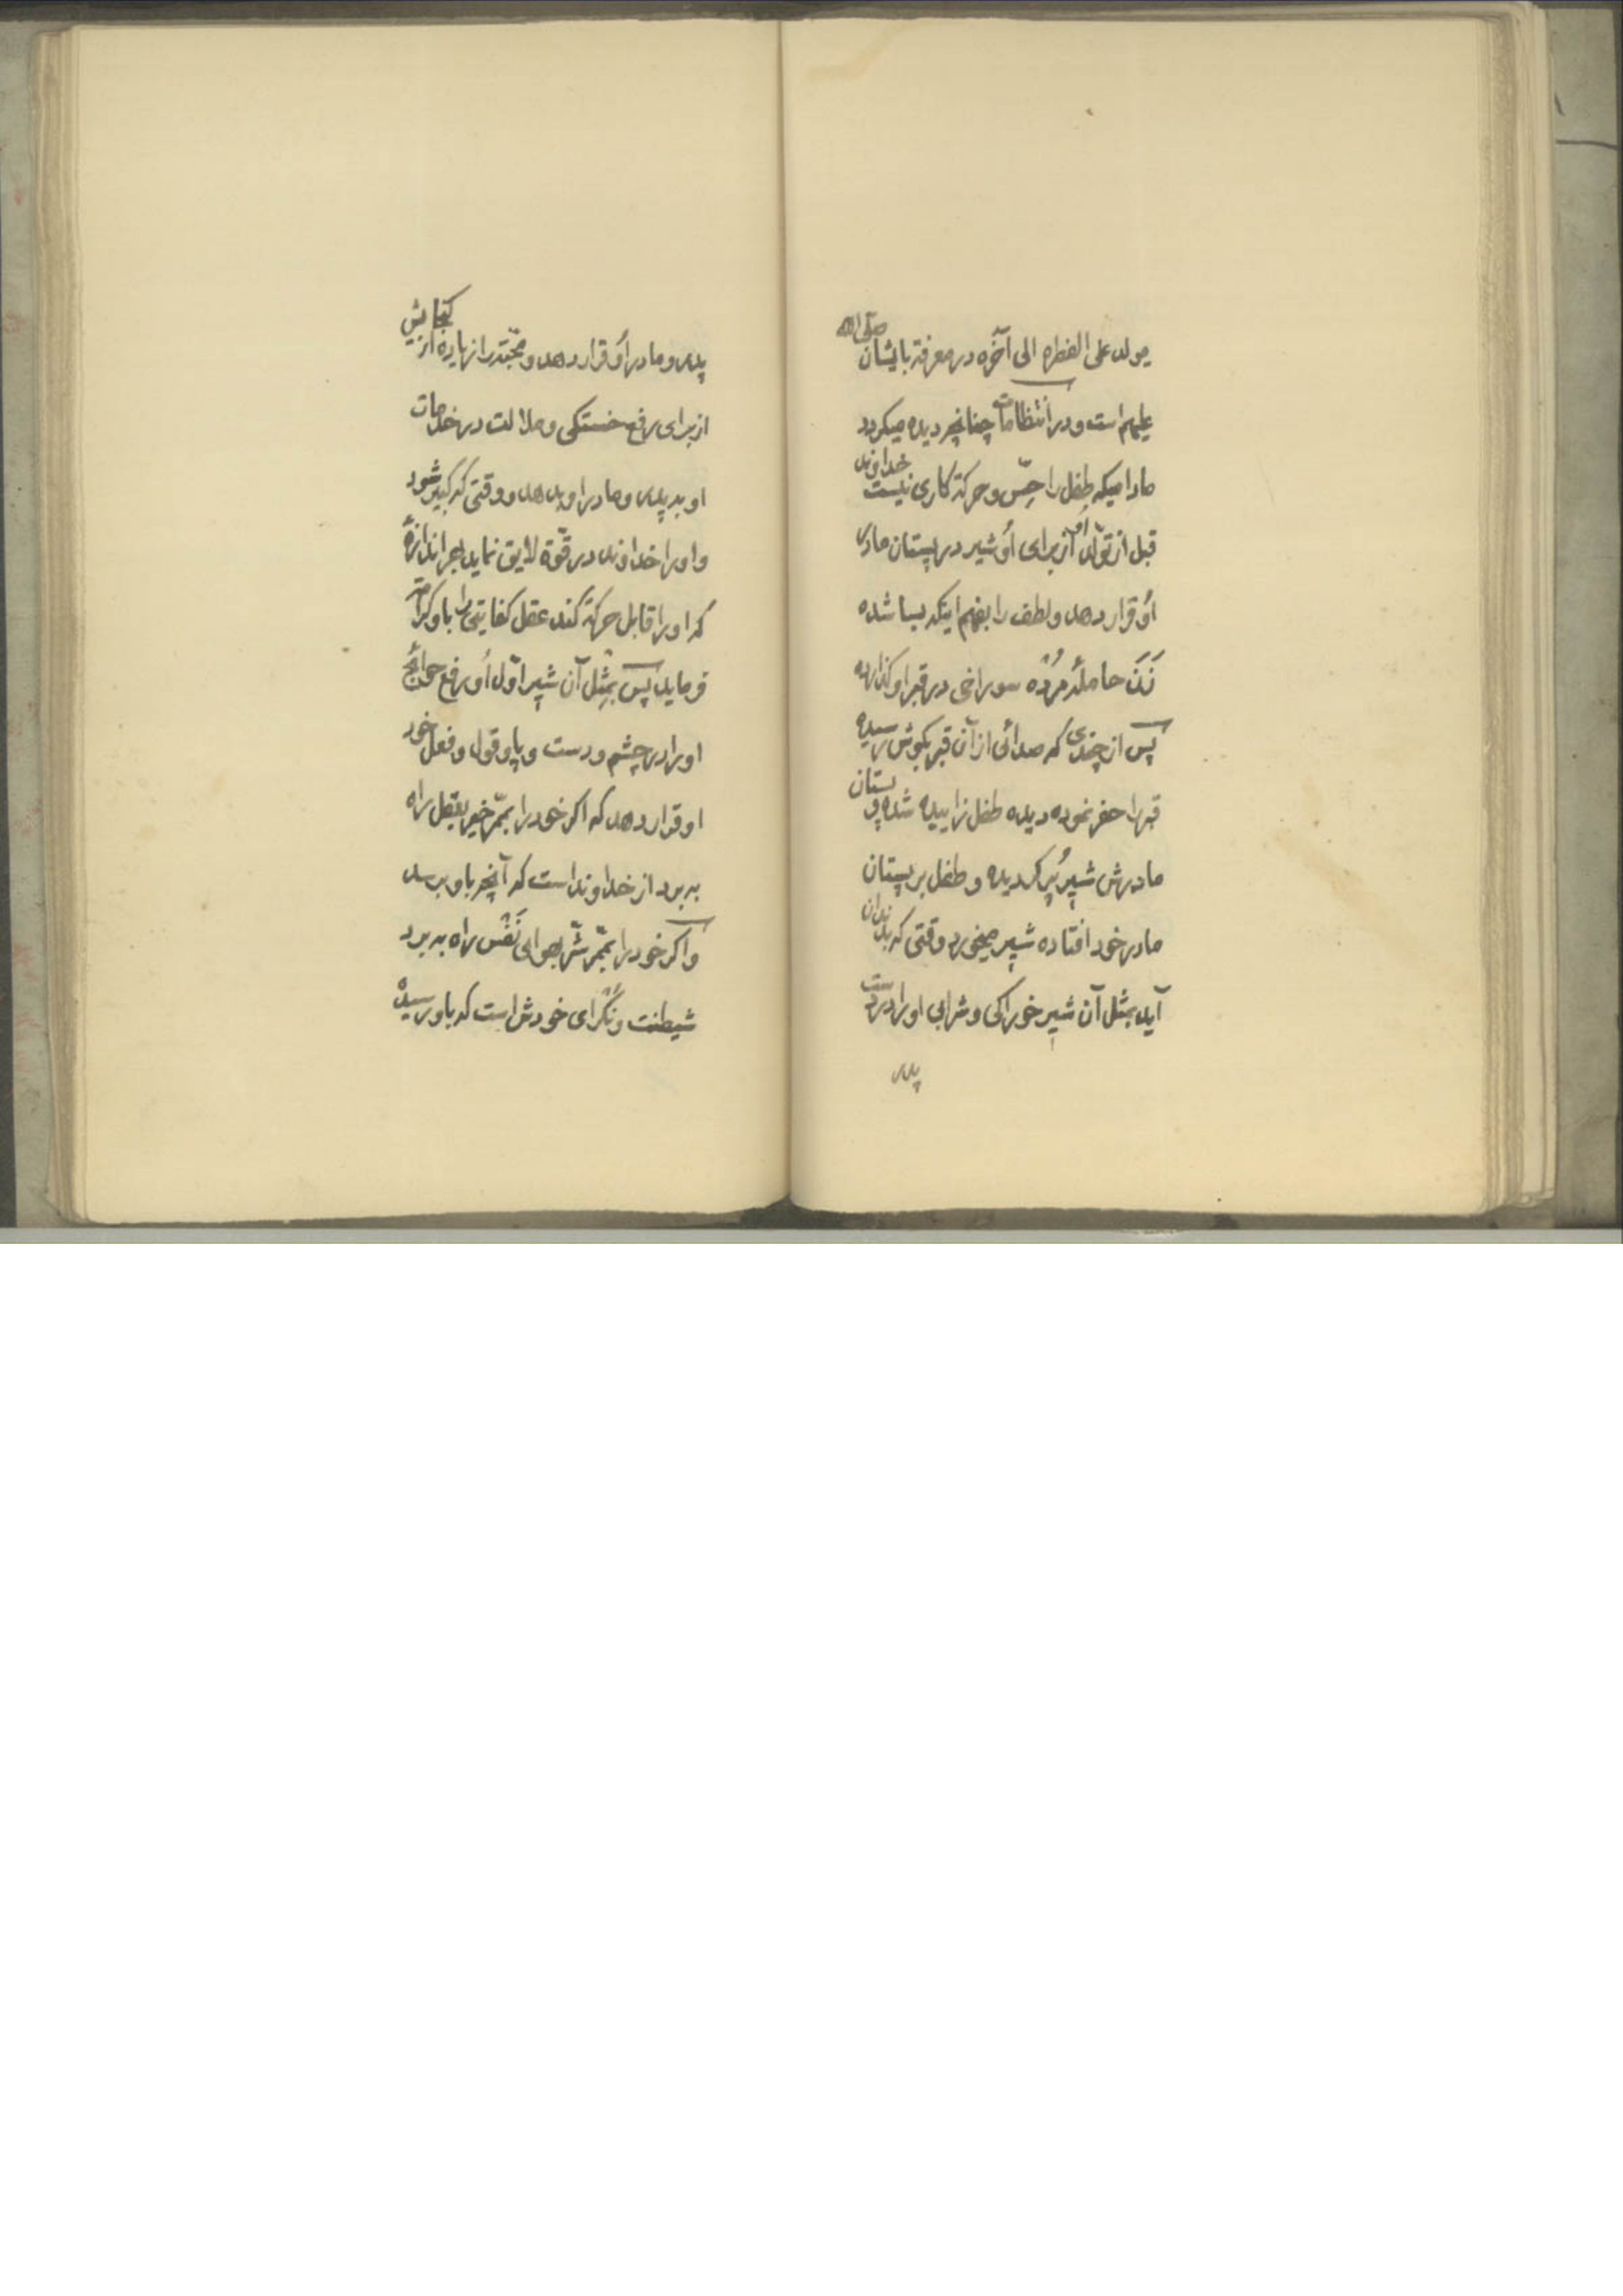 یولد علی الفطره الی آخره در معرفة بایشان صلی الله
علیهم است و در انتظامات چنانچه دیده میکردد
مادامیکه طفل را حِسّ و حرکة کاری نیست خداوند
قبل از تولّد اُو از برای اُو شیر در پستان مادر
اُو قرار دهد و لطف را بفهم اینکه بسا شده
زَنَ حاملۀ مُرْدَه سوراخی در قبر او کذارده
پس از چندی که صدائی از آن قبر بکوش رسیده
قبرا حفر نموده دیده طفل زاییده شده و پستان
مادرش شیر پُر کردیده و طفل بر پستان
مادر خود افتاده شیر میخورد وقتی که بدندان
آید بمثل آن شیر خوراکی و شرابی او را در دست
پدر
پدر و مادر اُو قرار دهد و محبّتْ را زیاده از کنجایش
از برای رفع خستکی و ملالت در خدمات
او بد پدر و مادر او بدهد و وقتی که کبیر شود
و او را خداوند در قوّة لایق نماید بهر اندازۀ
که او را قابل حرکة کند عقل کفایتی را باو کرامة
فرماید پس بمِثِلِ آن شیر اوّل اُو رفع حوائج
او را در چشم و دست و پا و قول و فعل خود
او قرار دهد که اکر خود را بممرّ خیر بعقل راه
به برد از خداوند است که آنچه باو برسد
و اکر خود را بممرّ شرّ بهوای نَفْس راه به برد
شیطنت و نکرای خودش است که باو رسیده